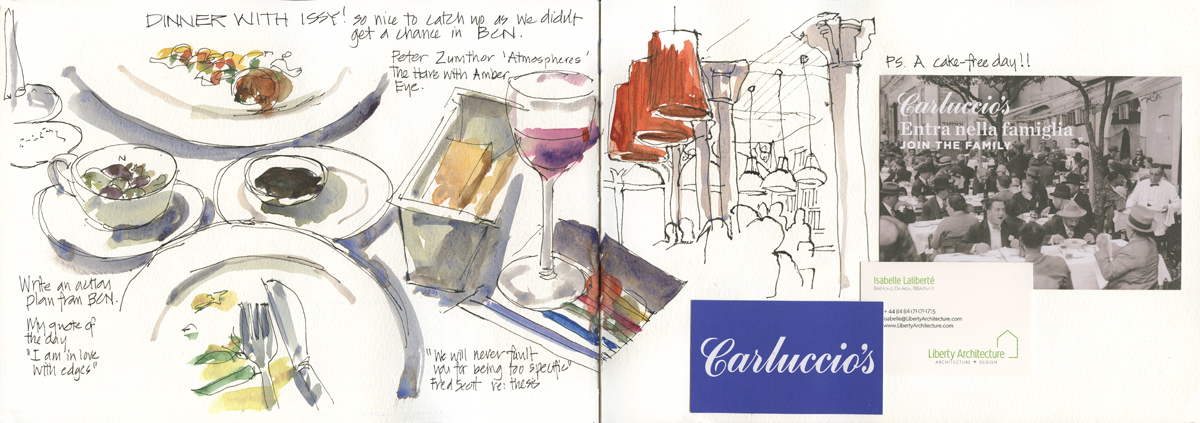 DINNER WITH ISSY! so nice to catch up as we didn't
get a chance in BCN.
Peter Zumthor 'Atmospheres'
The Hare with Amber
Eye.
Write an action
plan from BCN.
My quote of
the day
"I am in love
with edges"
"We will never fault
you for being too specific"
Fred Scott re: thesis
PS. A cake-free day!!
Carluccio's
Entra nella famiglia
JOIN THE FAMILY
Isabelle Laliberté
isabelle@LibertyArchitecture.com
www.LibertyArchitecture.com
Liberty Architecture
ARCHITECTURE + DESIGN
Carluccio's